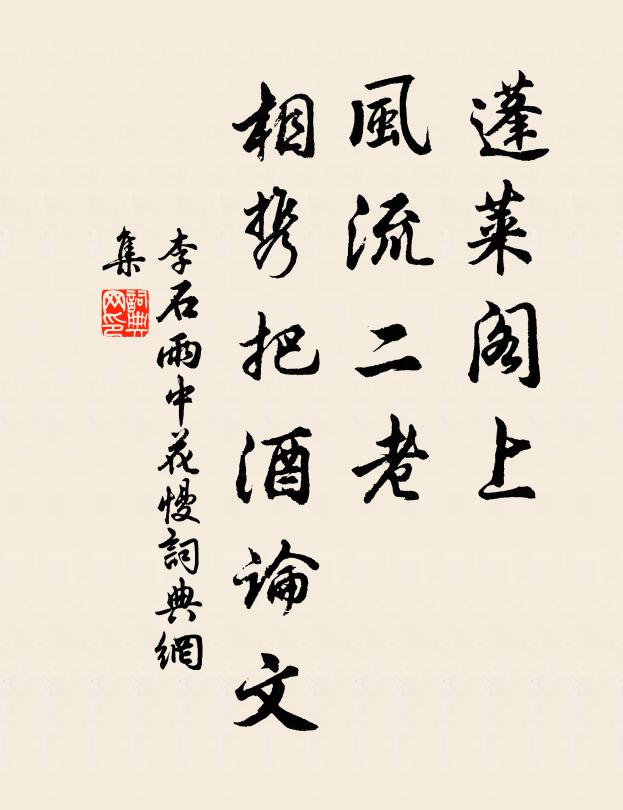 蓬萊阁上
風流二老
相携把酒論文
李石雨中花慢詞典網
集
詞典
网印